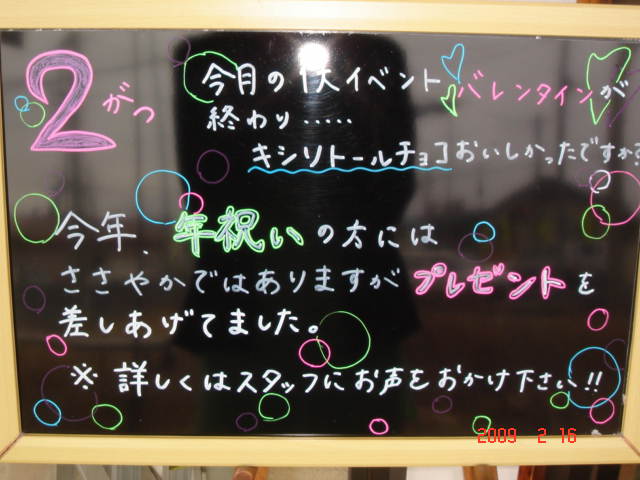 2がつ
今月の1大イベント バレンタインが
終わり‥‥‥
キシリトールチョコおいしかったですか?
今年、年祝いの方には
ささやかではありますがプレゼントを
差しあげてました。
※ 詳しくはスタッフにお声をおかけ下さい!!
2009 2 16